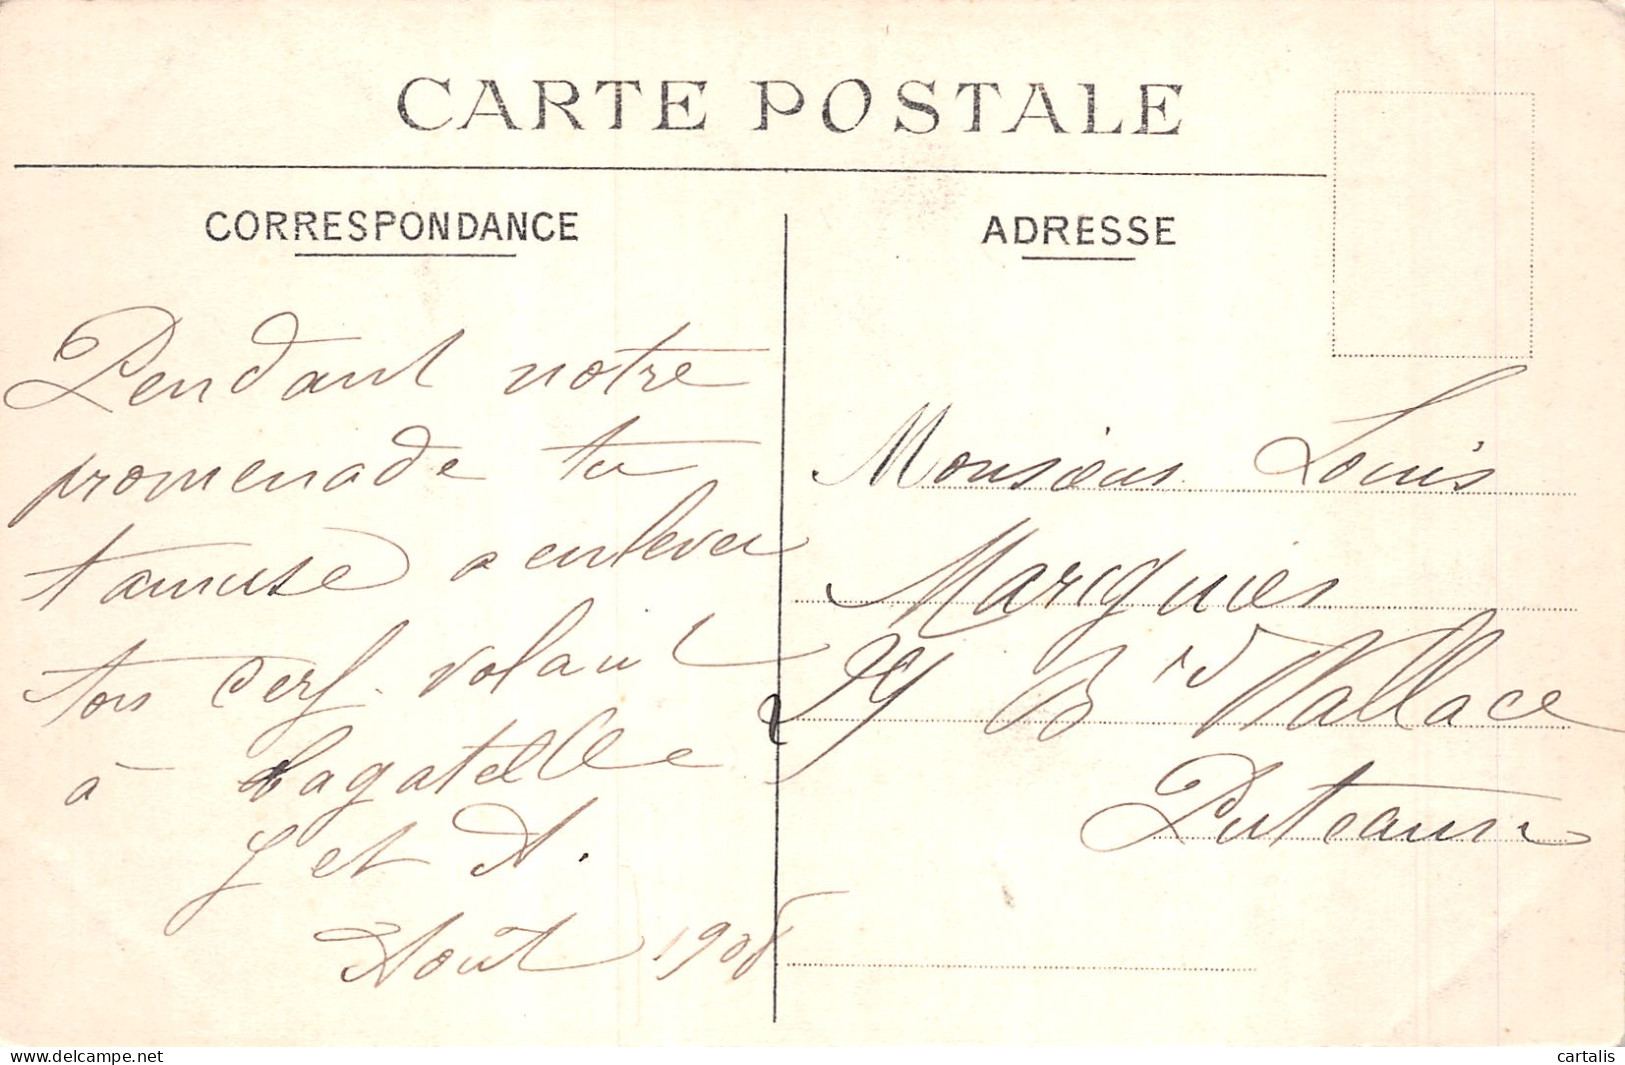 CARTE POSTALE
CORRESPONDANCE
ADRESSE
Pendant notre
promenade tu
t'amuse a enlever
ton cerf-volant
à bagatelle
et A.
Août 1908
Monsieur Louis
Marquies
29 Bd Wallace
Puteaux
www.delcampe.net
cartalis